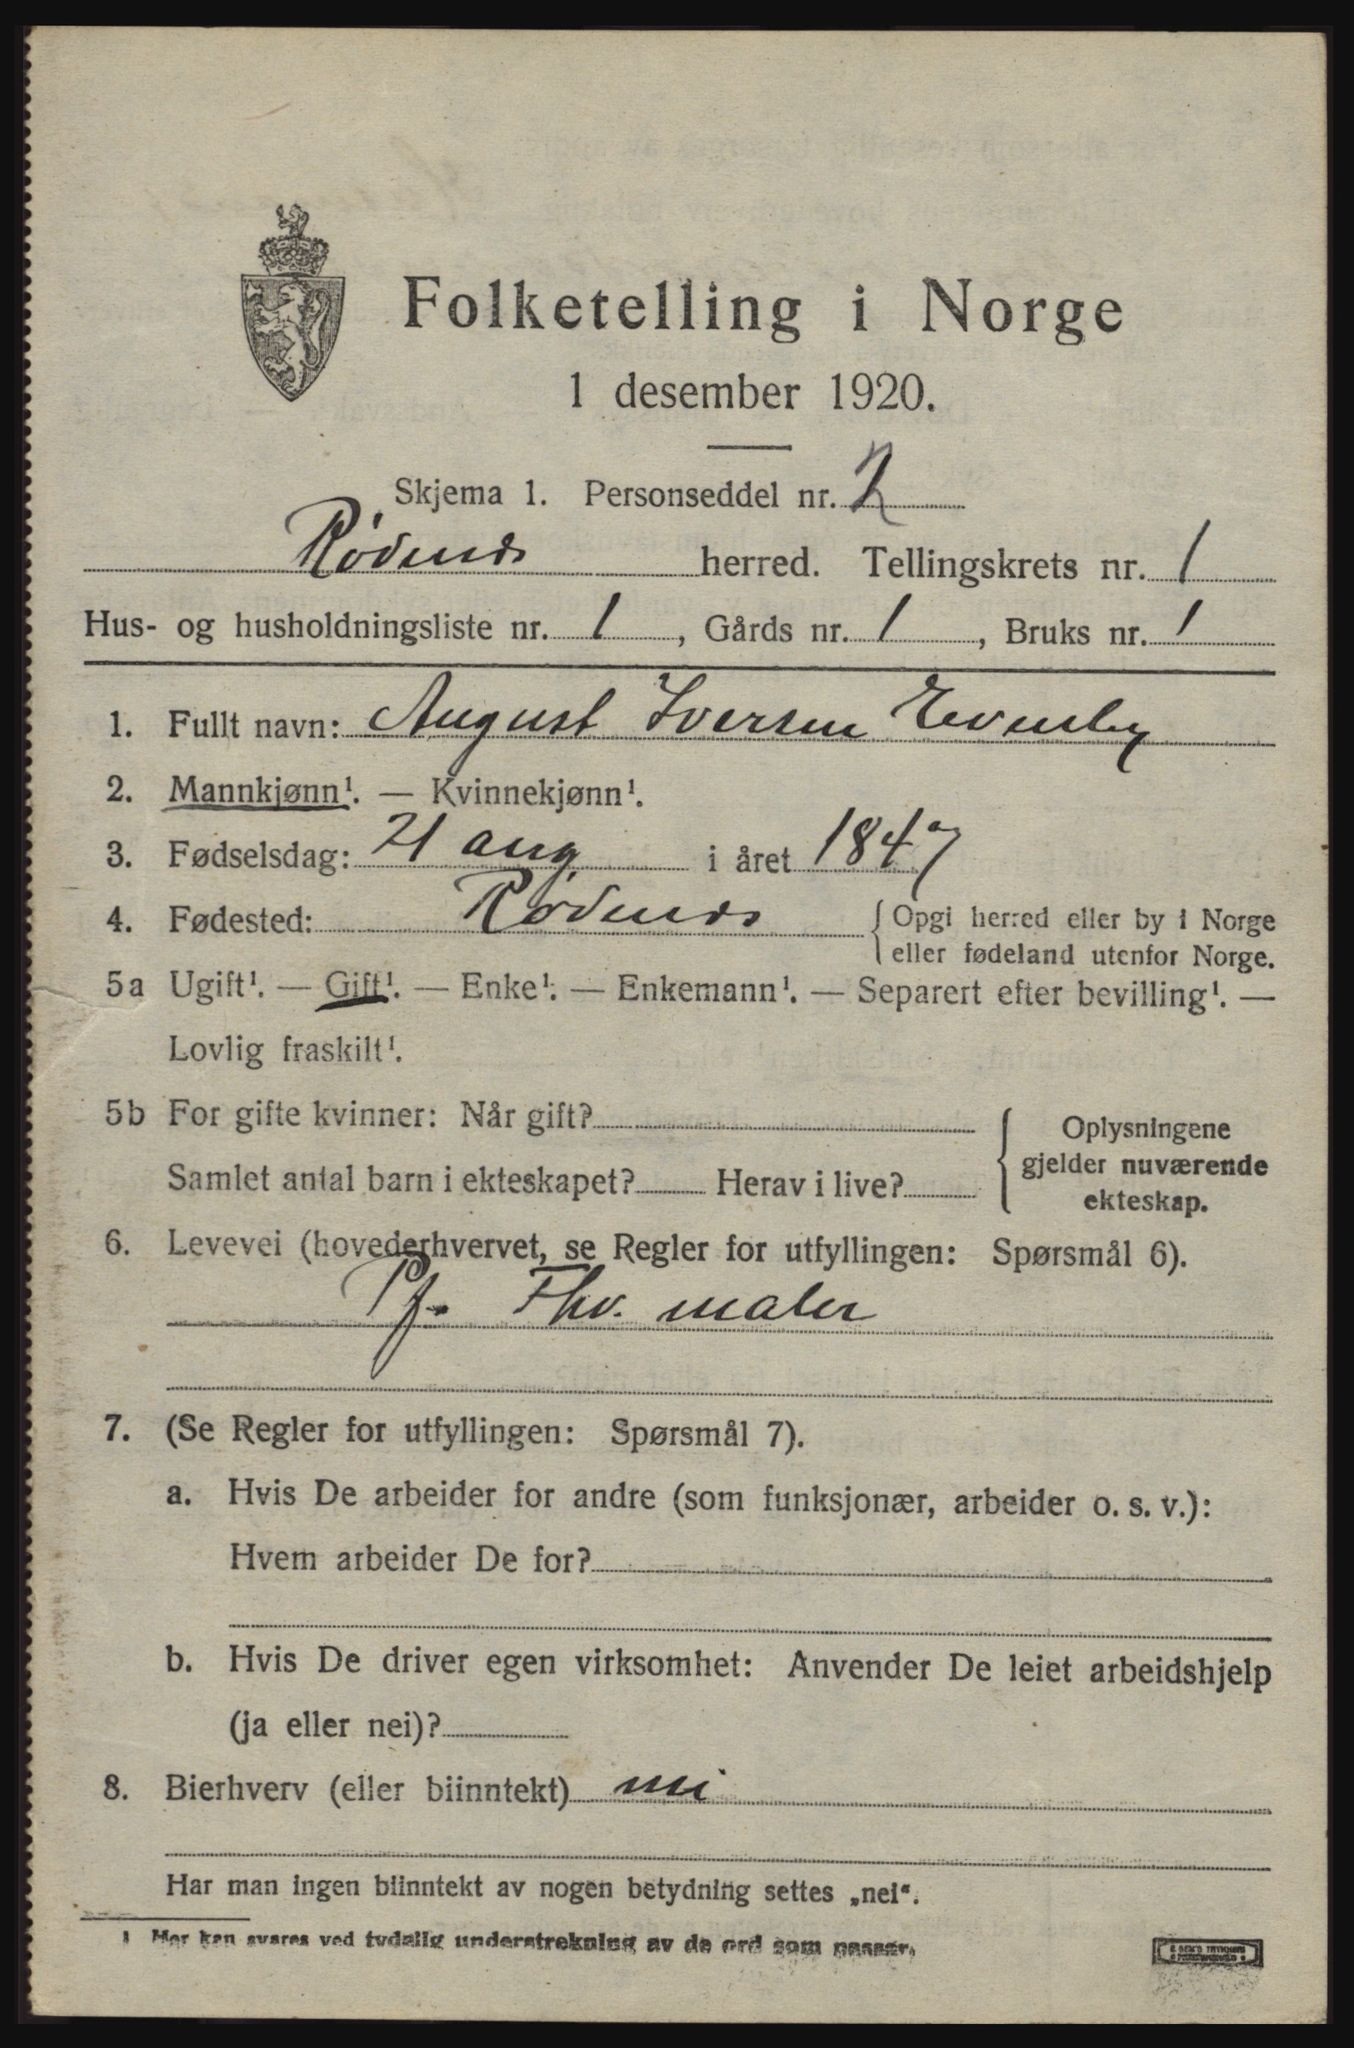 Folketelling i Norge
1 desember 1920.
Skjema 1. Personseddel nr. 2
Rødenes herred. Tellingskrets nr. 1
Hus- og husholdningsliste nr. 1, Gårds nr. 1, Bruks nr. 1
1. Fullt navn: August Iversen Evensby
2. Mannkjønn¹. — Kvinnekjønn¹.
3. Fødselsdag: 21 aug i året 1847
4. Fødested: Rødenes { Opgi herred eller by i Norge
eller fødeland utenfor Norge.
5a Ugift¹. — Gift¹. — Enke¹. — Enkemann¹. — Separert efter bevilling¹. —
Lovlig fraskilt¹.
5b For gifte kvinner: Når gift?
Samlet antal barn i ekteskapet? Herav i live?
{ Oplysningene
gjelder nuværende
ekteskap.
6. Levevei (hovederhvervet, se Regler for utfyllingen: Spørsmål 6).
Pf. Fhv. maler
7. (Se Regler for utfyllingen: Spørsmål 7).
a. Hvis De arbeider for andre (som funksjonær, arbeider o. s. v.):
Hvem arbeider De for?
b. Hvis De driver egen virksomhet: Anvender De leiet arbeidshjelp
(ja eller nei)?
8. Bierhverv (eller biinntekt) nei
Har man ingen biinntekt av nogen betydning settes „nei“.
1 Her kan svares ved tydelig understrekning av de ord som passer.